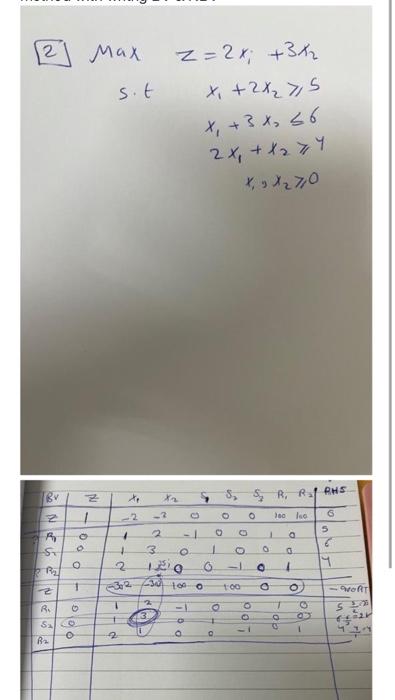 2 Max Z = 2x₁ + 3x₂
s.t x₁ + 2x₂ ⩾ 5
x₁ + 3x₂ ≤ 6
2x₁ + x₂ ⩾ 4
x₁, x₂ ⩾ 0
BV Z x₁ x₂ S₁ S₂ S₃ R₁ R₂ RHS
Z 1 -2 -3 0 0 0 100 100 0
R₁ 0 1 2 -1 0 0 1 0 5
S₂ 0 1 3 0 1 0 0 0 6
R₂ 0 2 1 0 0 -1 0 1 4
Z 1 -302 -303 100 0 100 0 0
R₁ 0 1 2 -1 0 0 1 0 5
S₂ 0 1 3 0 1 0 0 0 6
R₂ 0 2 1 0 0 -1 0 1 4